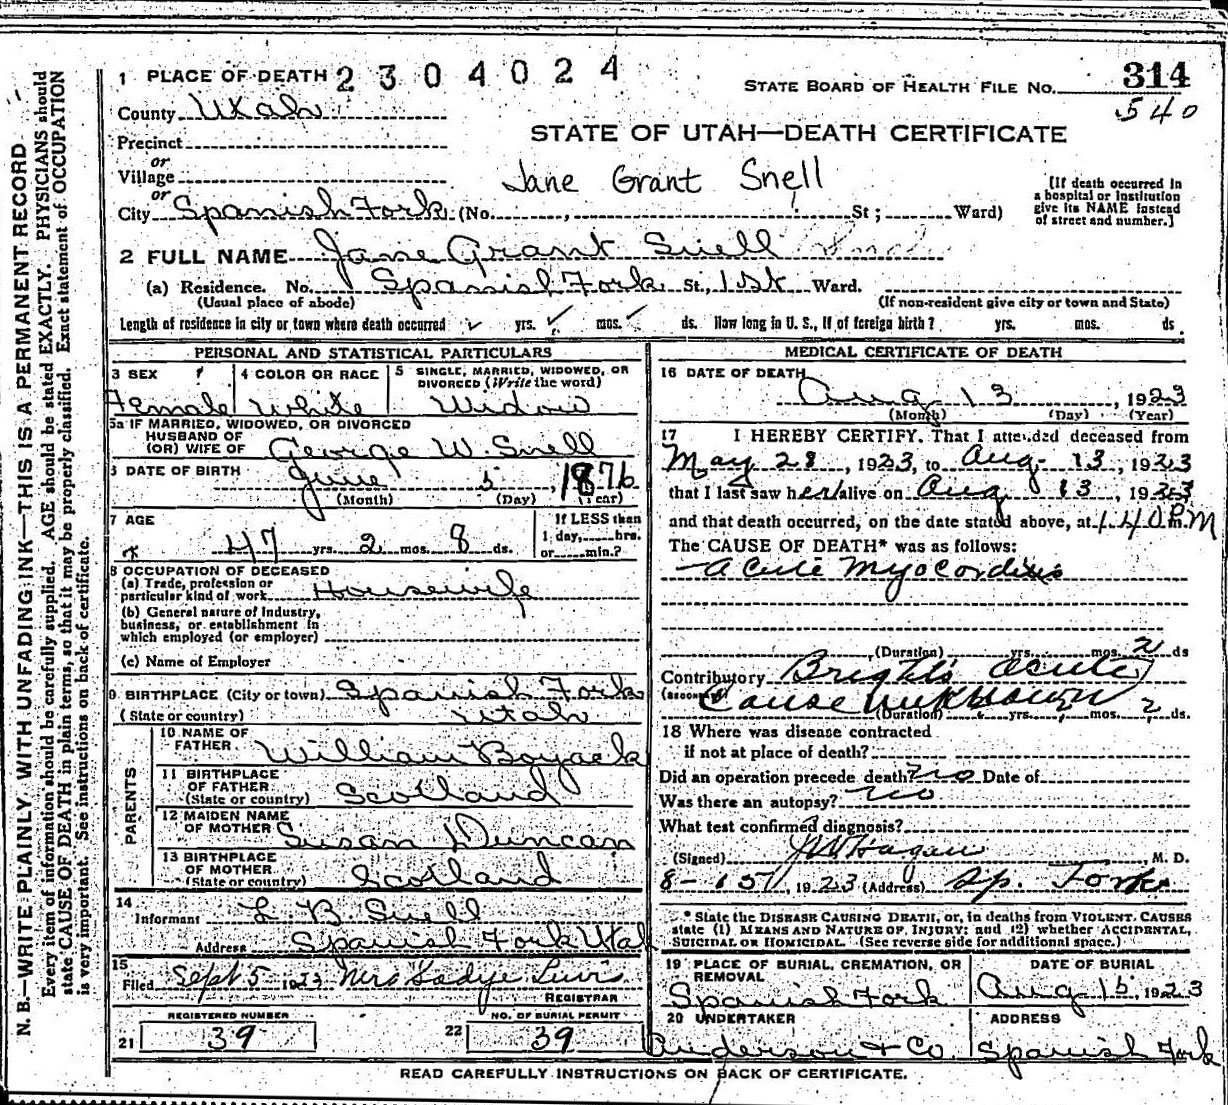 1 PLACE OF DEATH 2304024
STATE BOARD OF HEALTH FILE No. 314
540
County Utah
STATE OF UTAH—DEATH CERTIFICATE
Precinct
or
Village
Jane Grant Snell
[If death occurred in a hospital or institution give its NAME instead of street and number.]
or
City Spanish Fork (No. , St; Ward)
2 FULL NAME Jane Grant Snell
(a) Residence. No. Spanish Fork St., 1st Ward.
(Usual place of abode) (If non-resident give city or town and State)
Length of residence in city or town where death occurred ✓ yrs. ✓ mos. ✓ ds. How long in U. S., if of foreign birth? yrs. mos. ds.
PERSONAL AND STATISTICAL PARTICULARS
3 SEX 4 COLOR OR RACE 5 SINGLE, MARRIED, WIDOWED, OR DIVORCED (Write the word)
Female White Widow
5a IF MARRIED, WIDOWED, OR DIVORCED
HUSBAND OF
(OR) WIFE OF George W. Snell
6 DATE OF BIRTH June 5, 1876
(Month) (Day) (Year)
7 AGE If LESS than
47 yrs. 2 mos. 8 ds. 1 day, hrs.
or min.?
8 OCCUPATION OF DECEASED
(a) Trade, profession or
particular kind of work Housewife
(b) General nature of industry,
business, or establishment in
which employed (or employer)
(c) Name of Employer
9 BIRTHPLACE (City or town) Spanish Fork
(State or country) Utah
PARENTS
10 NAME OF
FATHER William Boyack
11 BIRTHPLACE
OF FATHER
(State or country) Scotland
12 MAIDEN NAME
OF MOTHER Susan Duncan
13 BIRTHPLACE
OF MOTHER
(State or country) Scotland
14
Informant L B Snell
Address Spanish Fork Utah
15
Filed Sept 5 1923 Mrs Sadye Lewis
REGISTRAR
REGISTERED NUMBER NO. OF BURIAL PERMIT
21 39 22 39
MEDICAL CERTIFICATE OF DEATH
16 DATE OF DEATH
Aug 13, 1923
(Month) (Day) (Year)
17 I HEREBY CERTIFY. That I attended deceased from
May 28, 1923, to Aug. 13, 1923
that I last saw her alive on Aug 13, 1923
and that death occurred, on the date stated above, at 1 40 P.M
The CAUSE OF DEATH* was as follows:
Acute Myocorditis
(Duration) yrs. mos. 2 ds
Contributory Bright's Acute
Cause unknown
(Duration) yrs. mos. 2 ds.
18 Where was disease contracted
if not at place of death?
Did an operation precede death? no Date of
Was there an autopsy? no
What test confirmed diagnosis?
(Signed) J W Hagan M. D.
8-15, 1923 (Address) Sp. Fork
* State the DISEASE CAUSING DEATH, or, in deaths from VIOLENT CAUSES
state (1) MEANS AND NATURE OF INJURY; and (2) whether ACCIDENTAL,
SUICIDAL OR HOMICIDAL. (See reverse side for additional space.)
19 PLACE OF BURIAL, CREMATION, OR REMOVAL DATE OF BURIAL
Spanish Fork Aug 15, 1923
20 UNDERTAKER ADDRESS
Anderson & Co. Spanish Fork
READ CAREFULLY INSTRUCTIONS ON BACK OF CERTIFICATE.
N. B.—WRITE PLAINLY, WITH UNFADING INK—THIS IS A PERMANENT RECORD
Every item of information should be carefully supplied. AGE should be stated EXACTLY. PHYSICIANS should
state CAUSE OF DEATH in plain terms, so that it may be properly classified. Exact statement of OCCUPATION
is very important. See instructions on back of certificate.